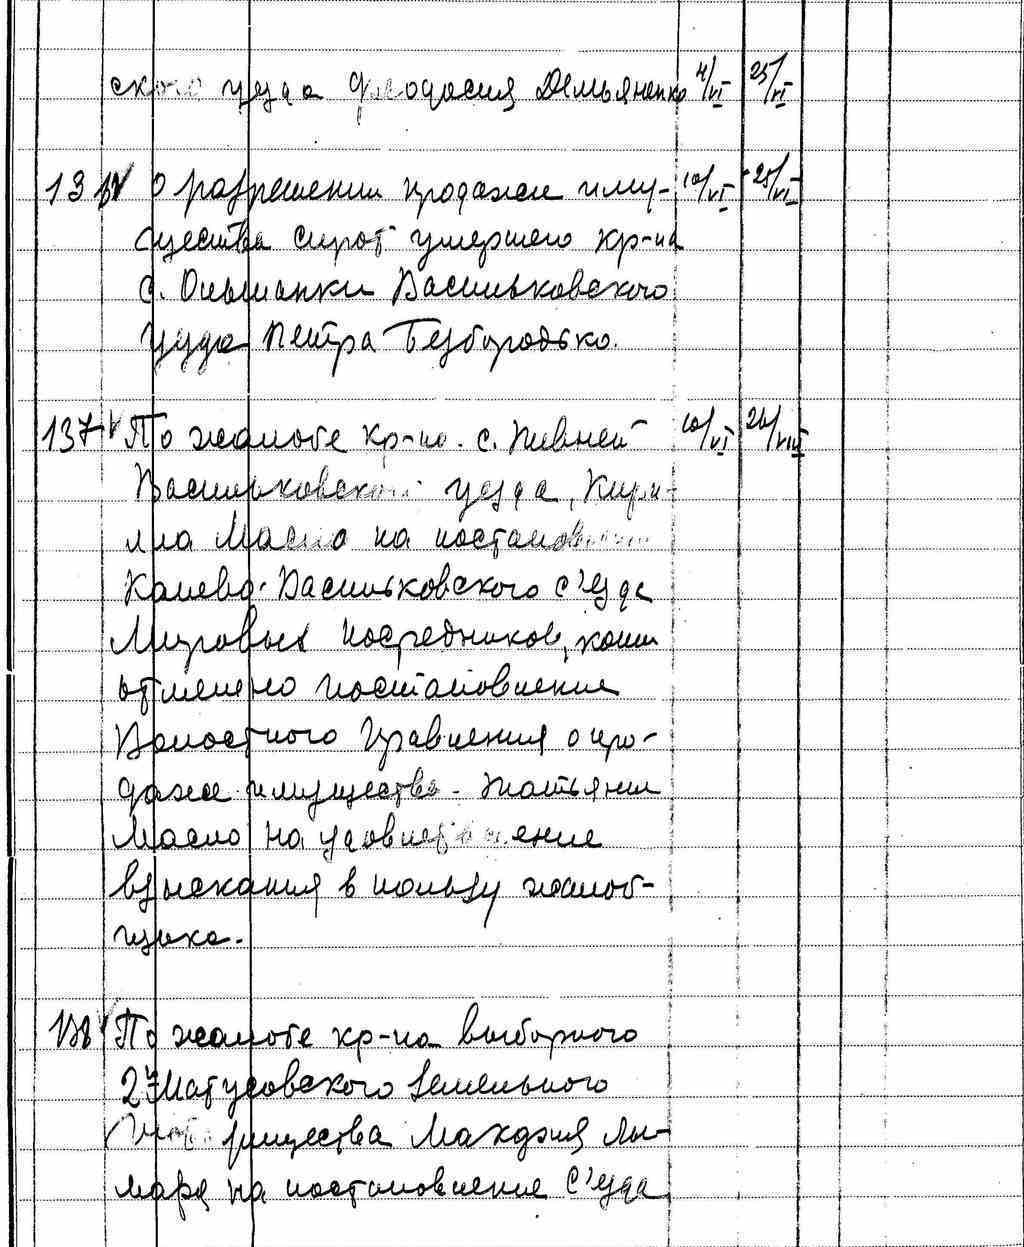 ского уезда Феодосия Демьяненко 4/VI 25/VI
136 О разрешении продажи иму- 10/VI 25/VI
щества сирот умершего кр-на
с. Ольшанки Васильковского
уезда Петра Безбородько.
137 По жалобе кр-на с. Пивней 10/VI 20/VIII
Васильковского уезда, Кири-
лла Масло на постановление
Канево-Васильковского с'езда
Мировых посредников, коим
отменено постановление
Волостного Правления о про-
даже имущества Татьяны
Масло на удовлетворение
взыскания в пользу жалоб-
щика.
138 По жалобе кр-на выборного
Матусовского земельного
товарищества Макария Лы-
маря на постановление С'езда